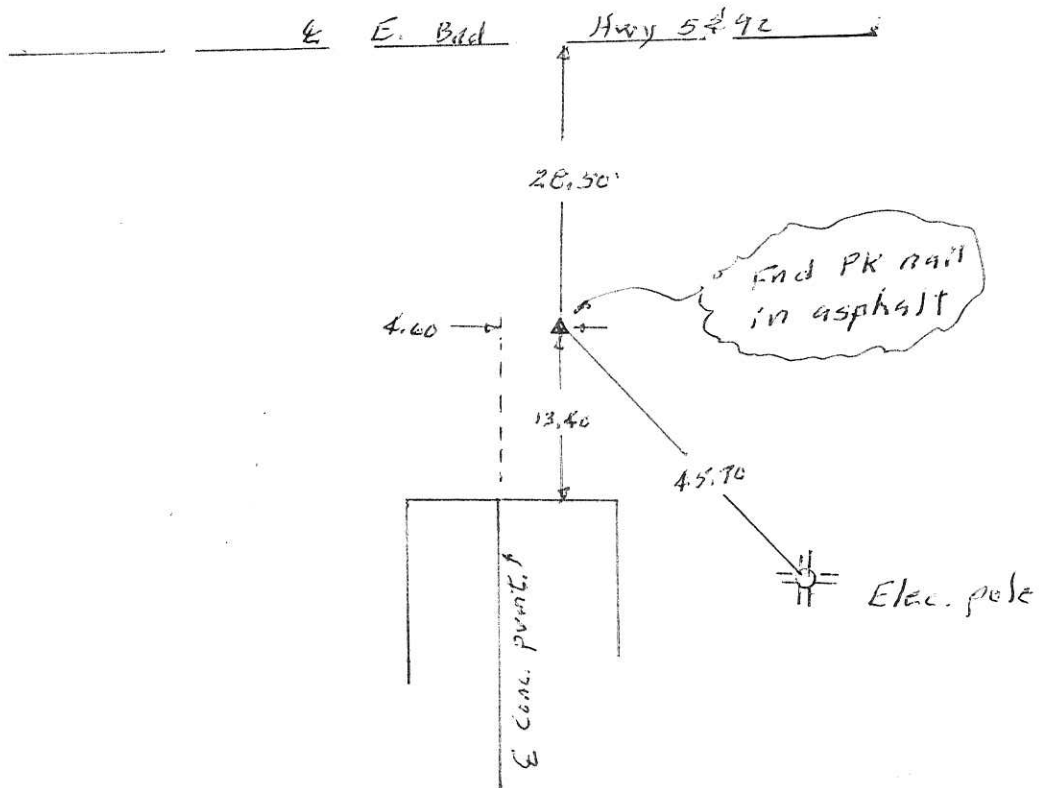 ℄ E. Bnd Hwy 5 & 92
28.50'
Fnd PK nail
in asphalt
4.60
13.40
45.70
Elec. pole
℄ Conc. pvmt.